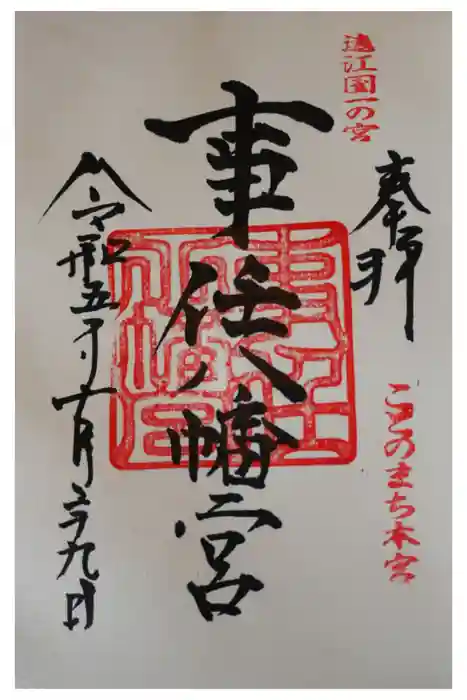 遠江国一の宮
奉拝
ことのまち本宮
事任八幡宮
事任
八幡宮
令和五年十月二十九日